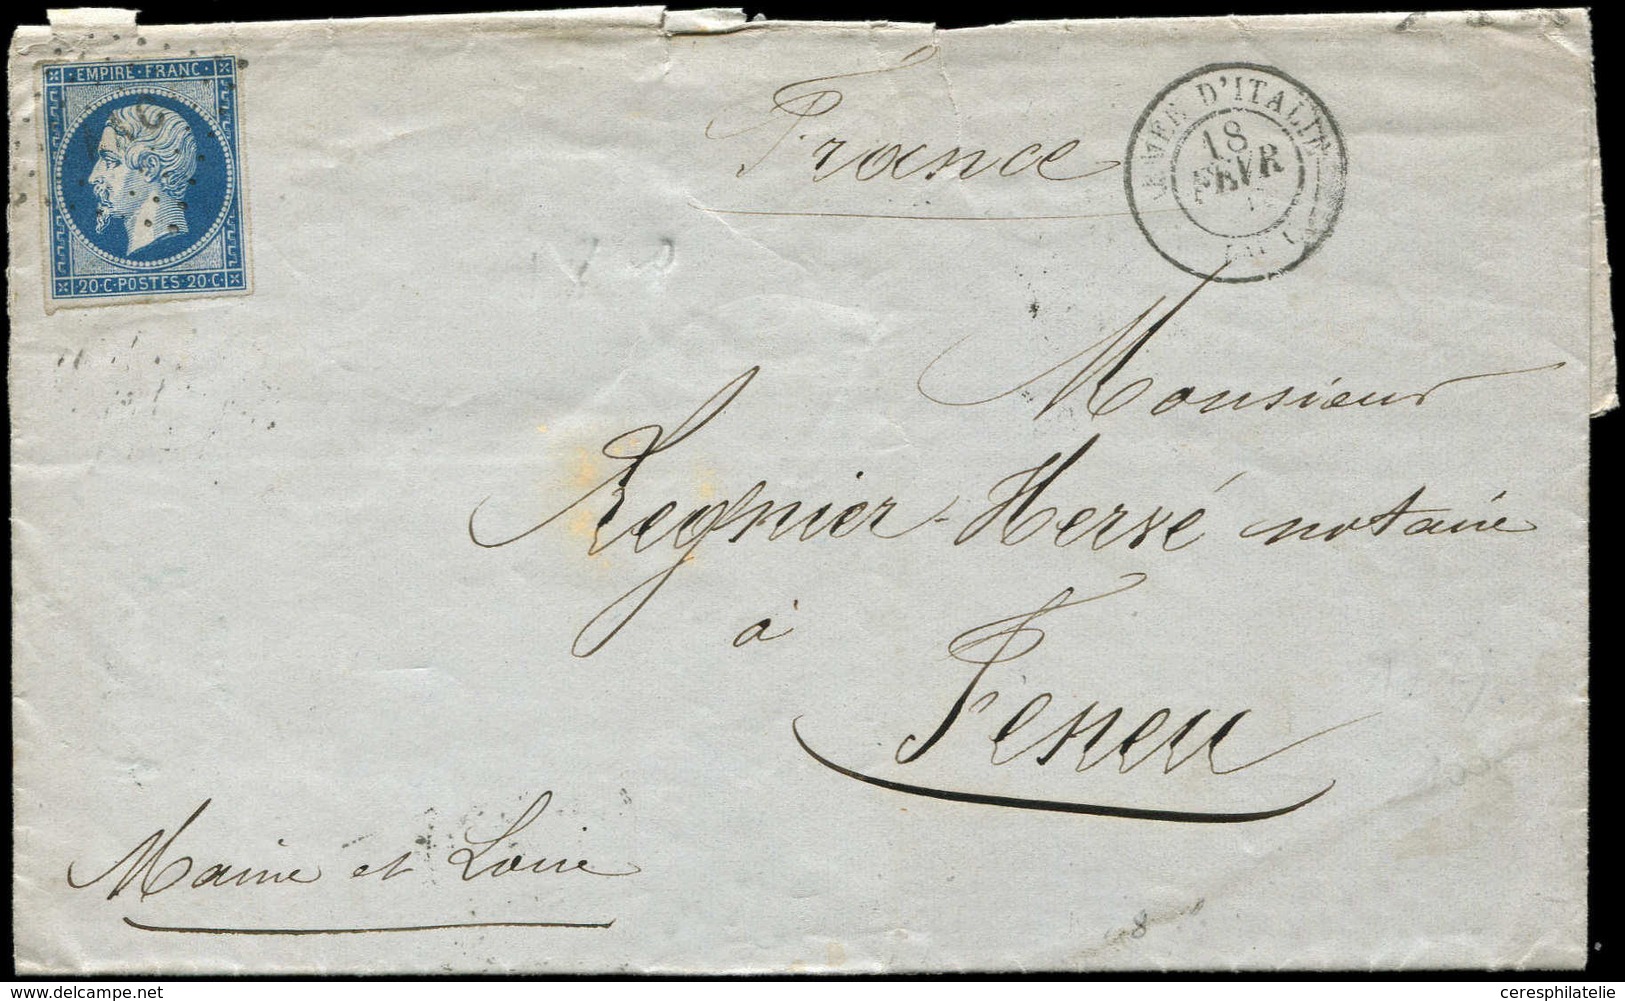 EMPIRE FRANC
20·C·POSTES·20·C
ARMÉE D'ITALIE
18
FEVR
France
Monsieur
Regnier-Hervé notaire
à
Feneu
Maine et Loire
8
© www.delcampe.net
ceresphilatelie